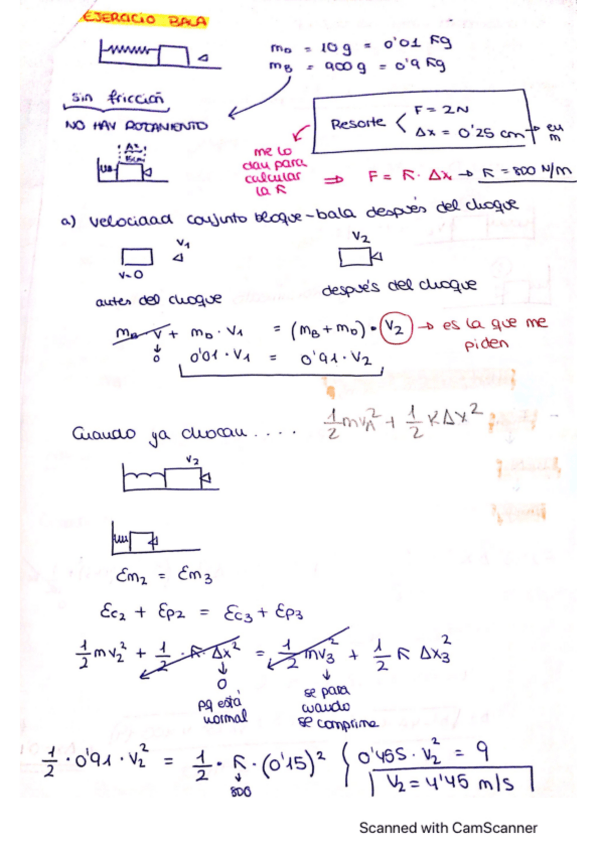 EJERCICIO BALA
m_D = 10 g = 0'01 Kg
m_B = 900 g = 0'9 Kg
sin fricción
NO HAY ROZAMIENTO
Resorte < F = 2N
Δx = 0'25 cm → en m
Δx
15cm
me lo dan para calcular la K
⇒ F = K · Δx → K = 800 N/m
a) velocidad conjunto bloque-bala después del choque
V1
V2
V=0
antes del choque
después del choque
m_B · V + m_D · V1 = (m_B + m_D) · V2 → es la que me piden
0
0'01 · V1 = 0'91 · V2
Cuando ya chocan .... 1/2 mv1² + 1/2 KΔx²
V2
Em2 = Em3
Ec2 + Ep2 = Ec3 + Ep3
1/2 mv2² + 1/2 · K · Δx² = 1/2 mv3² + 1/2 K Δx3²
0
pq está normal
se para cuando se comprime
1/2 · 0'91 · V2² = 1/2 · K · (0'15)² { 0'455 · V2² = 9
800
V2 = 4'45 m/s
Scanned with CamScanner